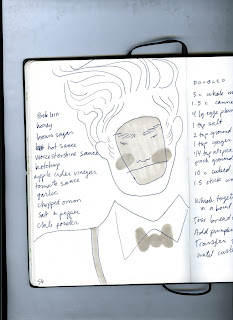 Pork loin
honey
brown sugar
hot sauce
Worcestershire sauce
ketchup
apple cider vinegar
tomato sauce
garlic
chopped onion
salt & pepper
chili powder
DOUBLED
3 c whole m
1.5 c canne
4 lg eggs
1 tsp salt
2 tsp ground
1 tsp ginger
1/4 tsp allspice
pinch ground
10 c cubed
1.5 stick un
Whisk toget
in a bowl
Toss bread
Add pumpki
Transfer
until custa